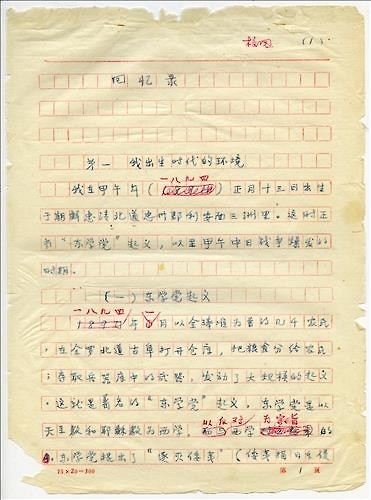 (1)
回忆录
第一 我出生时代的环境
一八九四
我在甲午年(　)正月十三日出生
于朝鲜忠清北道忠州郡利安面三洲里。这时正
当"东学党"起义,以至甲午中日战争爆发的
时期。
(一)东学党起义
一八九四 一
1894年 月以全琫准为首的几千农民
在全罗北道古阜打开仓库,把粮食分给农民
夺取兵器库中的武器,发动了大规模的起义
这就是著名的"东学党"起义。东学党是以
以反对 为宗旨
天主教和耶稣教为西学, 西学 的
东学党提出了"逐灭倭夷"(倭夷指日倭侵
15×20=300 第 1 页